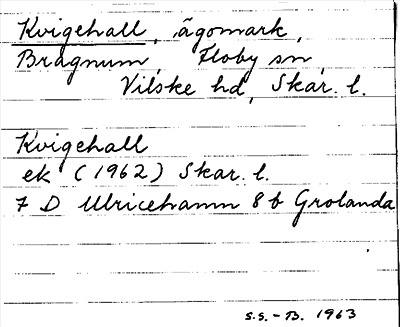 Kvigehall, ägomark,
Brägnum, Floby sn,
Vilske hd, Skar. l.
Kvigehall
ek (1962) Skar. l.
7 D Ulricehamn 8 b Grolanda
S.S.-B. 1963